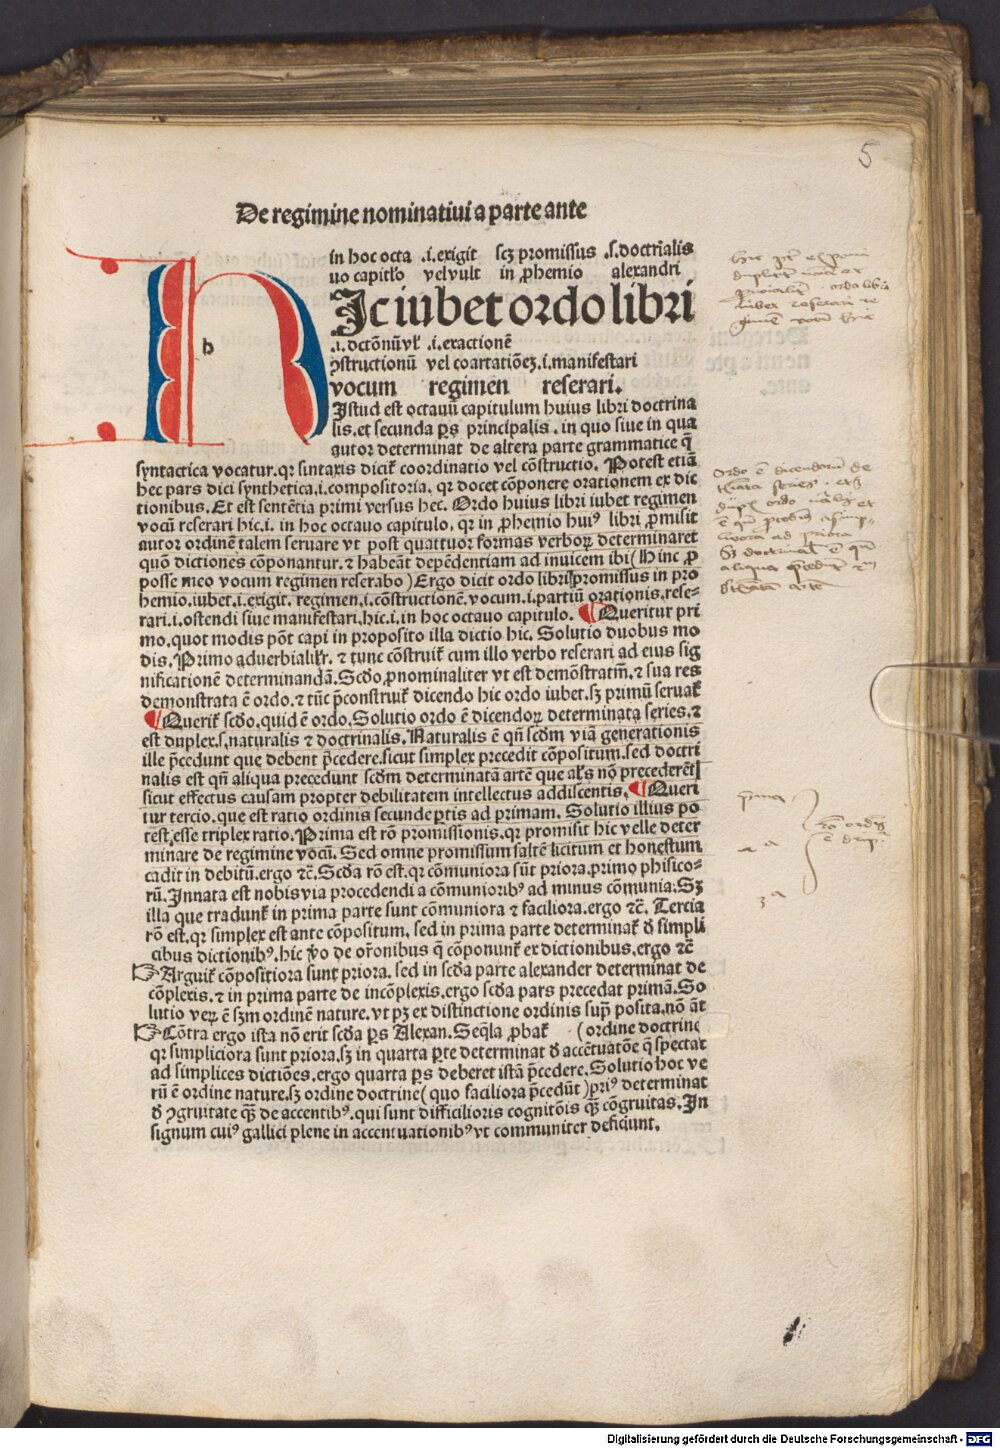 5
De regimine nominatiui a parte ante
in hoc octa .i.exigit scꝫ promissus .s.doctrīalis
uo capitl'o vel vult in ꝓhemio alexandri
h
Ic iubet ordo libri
.i.exactionē
ꝯstructionū vel coartatiōeꝫ.i.manifestari
vocum regimen reserari.
Istud est octauū capitulum huius libri doctrina
lis.et secunda ꝑs principalis.in quo siue in qua
autor determinat de altera parte grammatice q̄
syntactica vocatur.qꝛ sintaxis dicit̄ coordinatio vel cōstructio. Potest etiā
hec pars dici synthetica.i.compositoria. qꝛ docet cōponere orationem ex dic
tionibus. Et est sentētia primi versus hec. Ordo huius libri iubet regimen
vocū reserari hic.i. in hoc octauo capitulo. qꝛ in ꝓhemio huiꝰ libri ꝓmisit
autor ordinē talem seruare vt post quattuor formas verboꝝ determinaret
quō dictiones cōponantur. ⁊ habeāt depēdentiam ad inuicem ibi (Hinc ꝓ
posse meo vocum regimen reserabo) Ergo dicit ordo libri promissus in pro
hemio.iubet.i.exigit. regimen.i.cōstructionē.vocum.i.partiū orationis.rese-
rari.i.ostendi siue manifestari.hic.i.in hoc octauo capitulo. ¶ Queritur pri
mo.quot modis pōt capi in proposito illa dictio hic. Solutio duobus mo
dis. Primo aduerbialit̄. ⁊ tunc cōstruit̄ cum illo verbo reserari ad eius sig
nificationē determinandā. Scd̄o ꝓnominaliter vt est demōstratiū. ⁊ sua res
demonstrata ē ordo. ⁊ tūc p̄construit̄ dicendo hic ordo iubet. sꝫ primū seruat̄
¶ Querit̄ scd̄o. quid ē ordo. Solutio ordo ē dicendoꝝ determinata series. ⁊
est duplex.s.naturalis ⁊ doctrinalis. Naturalis ē qn̄ scd̄m viā generationis
ille p̄cedunt que debent p̄cedere.sicut simplex precedit cōpositum.sed doctri
nalis est qn̄ aliqua precedunt scd̄m determinatā artē que al's nō precederēt
sicut effectus causam propter debilitatem intellectus addiscentis. ¶ Queri
tur tercio.que est ratio ordinis secunde ꝑtis ad primam. Solutio illius po
test esse triplex ratio. Prima est rō promissionis.qꝛ promisit hic velle deter
minare de regimine vocū. Sed omne promissum saltē licitum et honestum
cadit in debitū.ergo ⁊c̄. Scd̄a rō est.qꝛ cōmuniora sūt priora.primo phisico-
rū. Innata est nobis via procedendi a cōmunioribꝰ ad minus cōmunia. Sꝫ
illa que tradunt̄ in prima parte sunt cōmuniora ⁊ faciliora.ergo ⁊c̄. Tercia
rō est.qꝛ simplex est ante cōpositum. sed in prima parte determinat̄ d̄ simpli
cibus dictionibꝰ.hic v̄o de or̄onibus q̄ cōponunt̄ ex dictionibus.ergo ⁊c̄
Arguit̄ cōpositiora sunt priora. sed in scd̄a parte alexander determinat de
cōplexis. ⁊ in prima parte de incōplexis.ergo scd̄a pars precedat primā. So
lutio veꝝ ē sm̄ ordinē nature. vt pꝫ ex distinctione ordinis sup̄ posita.nō āt
Cōtra ergo ista nō erit scd̄a ꝑs Alexan. Seq̄la ꝓbat̄ (ordine doctrine
qꝛ simpliciora sunt priora.sꝫ in quarta ꝑte determinat d̄ accētuatōe q̄ spectat
ad simplices dictiōes.ergo quarta ꝑs deberet istā p̄cedere. Solutio hoc ve
rū ē ordine nature.sꝫ ordine doctrine (quo faciliora p̄cedūt) priꝰ determinat
d̄ ꝯgruitate qꝫ de accentibꝰ.qui sunt difficilioris cognitōis qꝫ cōgruitas. In
signum cuiꝰ gallici plene in accentuationibꝰ vt communiter deficiunt.
Digitalisierung gefördert durch die Deutsche Forschungsgemeinschaft - DFG